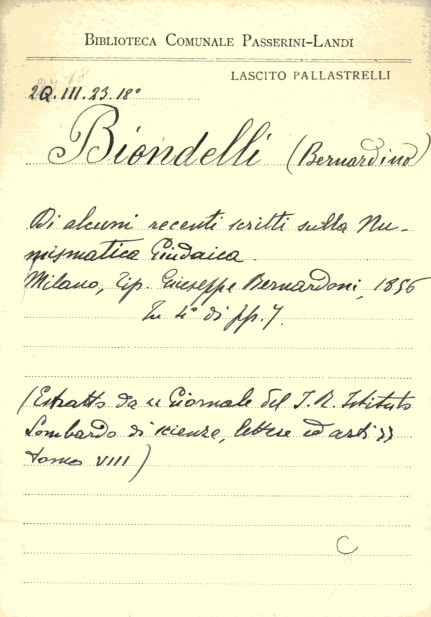 BIBLIOTECA COMUNALE PASSERINI-LANDI
LASCITO PALLASTRELLI
2Q.III.23.18°
Biondelli (Bernardino)
Di alcuni recenti scritti sulla Nu-
mismatica Giudaica.
Milano, Tip. Giuseppe Bernardoni, 1856
In 4° di pp. 7.
(Estratto da "Giornale del I. R. Istituto
Lombardo di scienze, lettere ed arti"
tomo VIII)
C